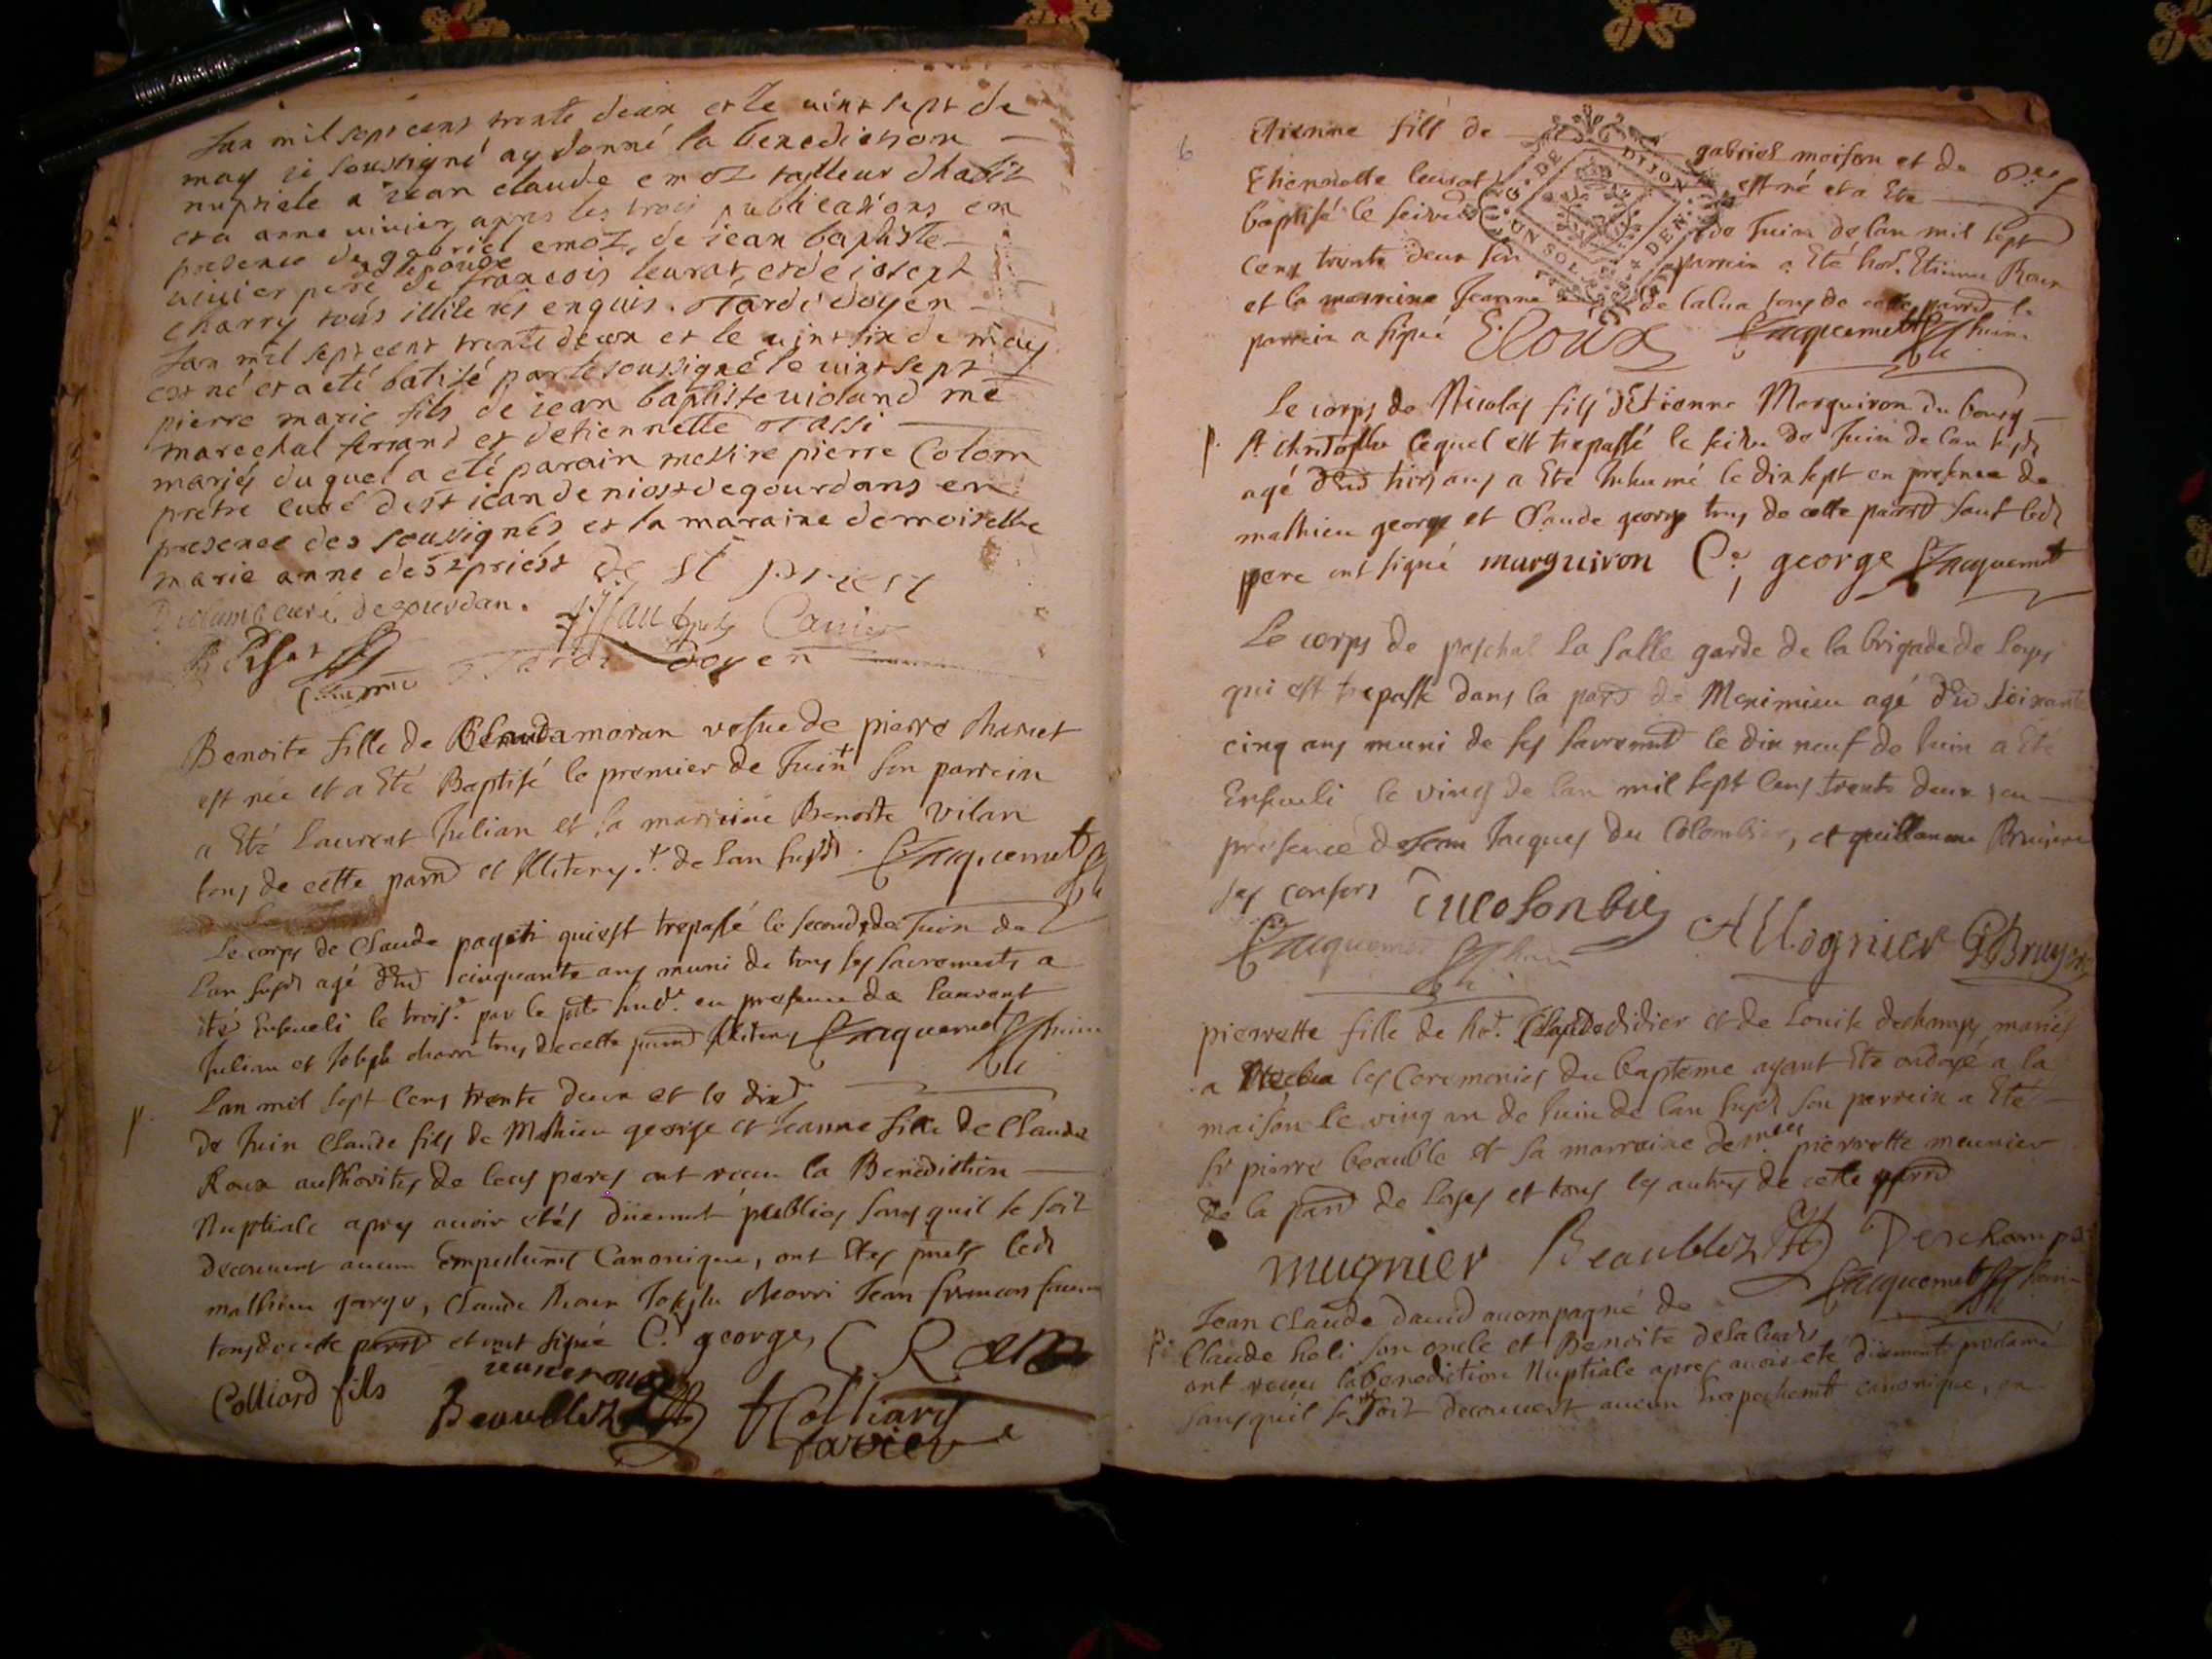 Lan mil sept cens trente deux et le uint sept de
may ie soussigné ay donné la benediction
nuptiale a iean claude emoz tailleur dhabit
et a anne uiuier apres les trois publications en
presence de gabriel emoz, de iean baptiste
uiuier pere de lepouse francois leurat, et de ioseph
charry tous illiterés enquis. Tardi doyen
Lan mil sept cent trente deux et le uint six de may
est né et a eté batisé par le soussigné le uint sept
pierre marie fils de iean baptiste uioland me
marechal ferrand et detiennette Tassi
mariés duquel a eté parain messire pierre Colom
pretre curé de st iean de niost de gourdans en
presence des soussignés et la maraine demoiselle
marie anne de st priést De St priest
curé de gourdan.
Tardi Doyen
Benoite fille de Clauda moran vesue de pierre charret
est née et a Eté Baptisé le premier de Juin + son parrein
a Eté Laurent Julian et la marreine Benoite vilan
tous de cette parr et Illiterez. + de lan susd. Jacquemet
Le corps de Claude pageti qui est trepassé le second de Juin de
Lan susd agé denv cinquante ans muni de tous ses sacrements a
été Enseueli le trois.e par le en presence de laurent
Julian et Joseph charri tous de cette parr Illiterez Jacquemet
p. Lan mil sept Cens trente deux et le dix
de Juin Claude fils de Mathieu george et Jeanne fille de Claude
Roux authorites de leus peres ont receu la Benediction
Nuptiale apres auoir etés düement publies sans quil se soit
decouuert aucun Empechemt Canonique, ont Etes pnts led
mathieu george, Claude Roux Joseph charri Jean francois
tous de cette parr et ont signé C. george, C. Roux
Colliard fils
Beaublez Colliard
6
Etienne fils de gabriel moison et de
Ethiennette leurat est né et a Ete
baptisé le seize de Juin de lan mil sept
G. DE DIJON
UN SOL
DEN.
cens trente deux son parrein a Eté hod. Etienne Roux
et la marreine Jeanne de lalua tous de cette parr le
parrein a signé E Roux Jacquemet
Le corps de Nicolas fils dEtienne Marguiron du bourg
p. st christophle lequel est trepassé le seize de Juin de lan susd
agé denv trois ans a Eté Inhumé le dix sept en presence de
mathieu george et Claude george tous de cette parr sauf led
pere ont signé marguiron C.e george Jacquemet
Le corps de paschal La salle garde de la brigade de Loyes
qui est trepassé dans la parr de Meximieu agé denv soixante
cinq ans muni de ses sacremt le dix neuf de Juin a Eté
Enseueli le ving de lan mil sept Cens trente deux en
présence de Jean Jacques du Colombier, et guillaume Bruyere
ses consors Ducolonbier Allognier GBruyere
Jacquemet
pierrette fille de hod. Claude didier et de Louise dechamps mariés
a receu les Ceremonies du bapteme ayant Ete ondoyé a la
maison le ving un de Juin de lan susd son parrein a Eté
sr pierre beauble et sa marraine demlle pierrette meunier
de la parr de Loyes et tous les autres de cette parr
mugnier Beaublez Deschamps
Jacquemet
Jean Claude dauid acompagné de
p. Claude heli son oncle et Benoite delalua
ont receu la benediction Nuptiale apres auoir eté düement proclamé
sans quil se soit decouuert aucun Empechemt canonique, en